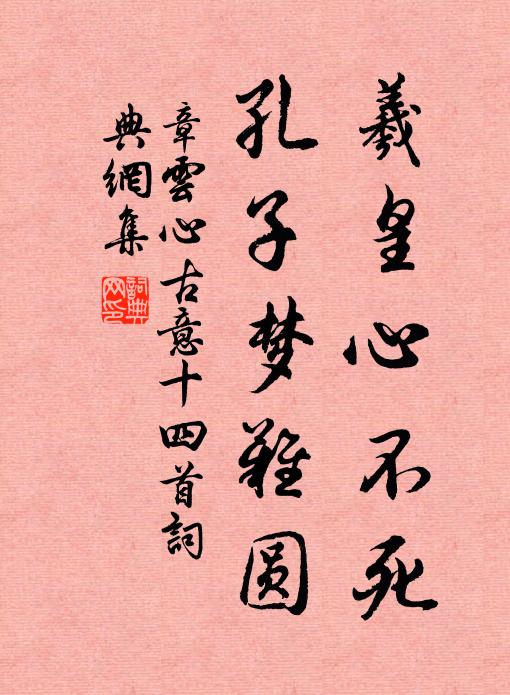 羲皇心不死
孔子梦難圆
章雲心古意十四首詞
典網集
詞典
网印